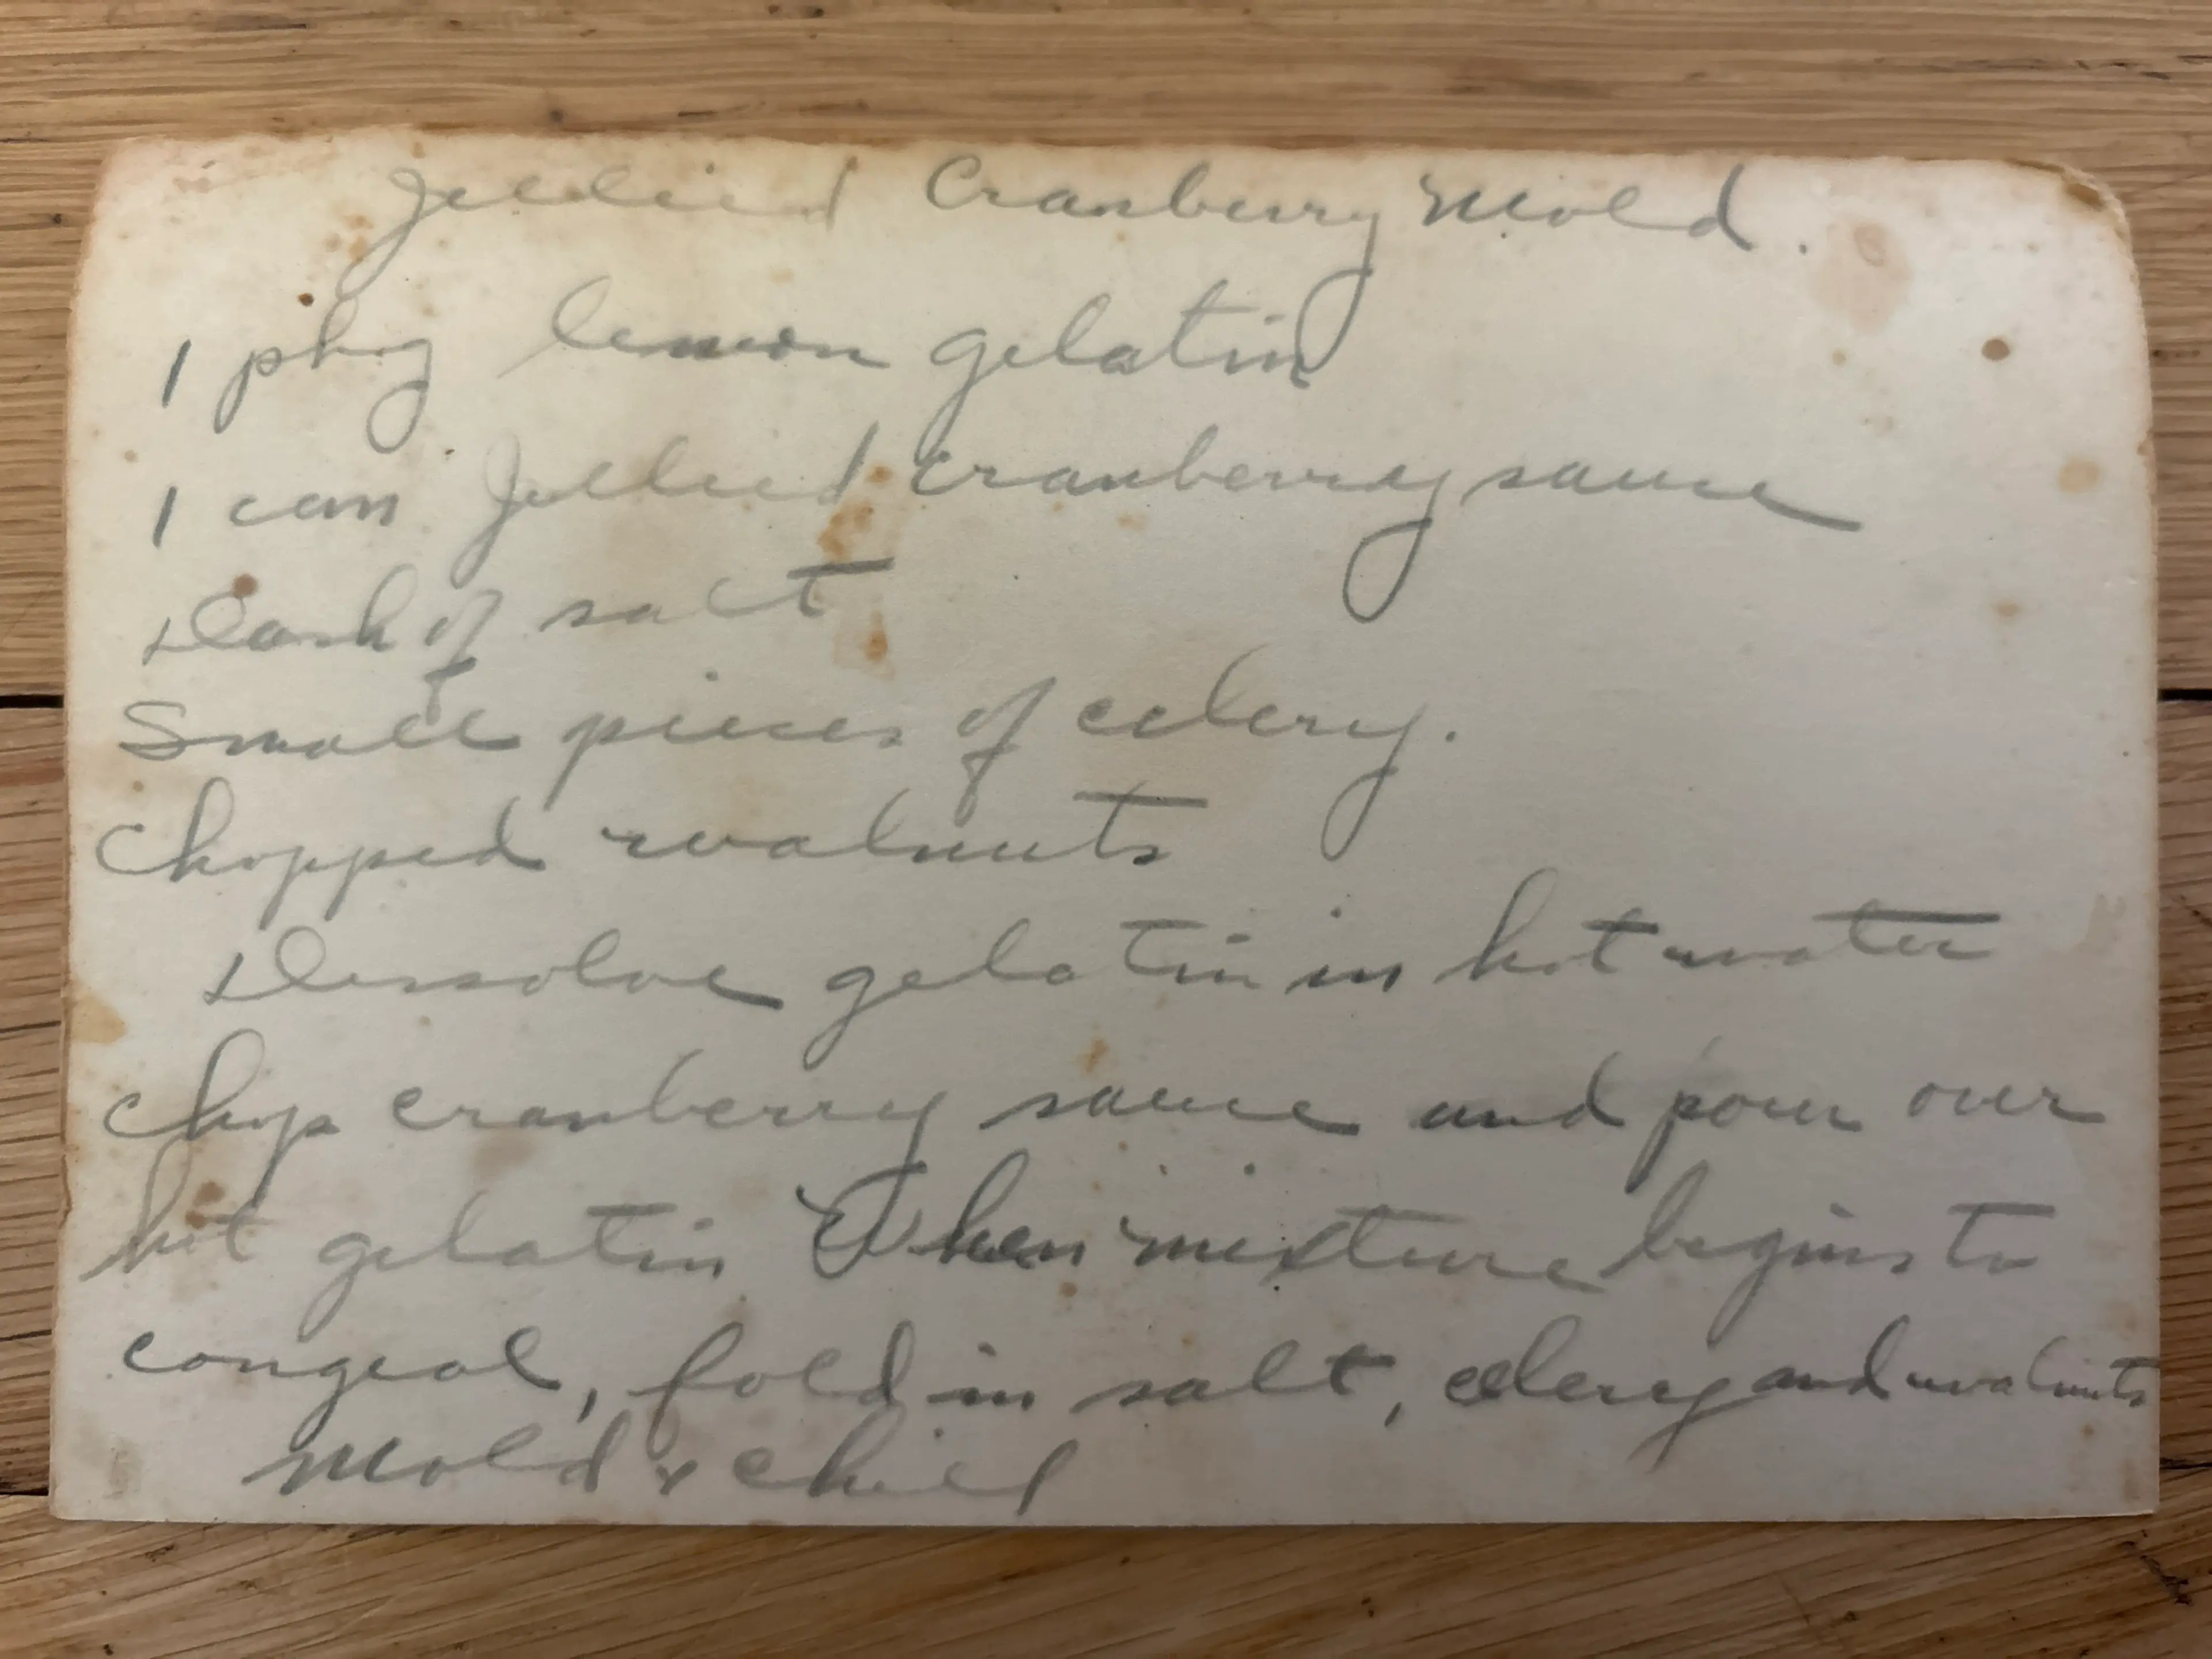 Jellied Cranberry Mold.
1 pkg lemon gelatin
1 can Jellied cranberry sauce
Dash of salt
Small pieces of celery.
Chopped walnuts
Dissolve gelatin in hot water
Chop cranberry sauce and pour over
hot gelatin When mixture begins to
congeal, fold in salt, celery and walnuts
Mold & chill